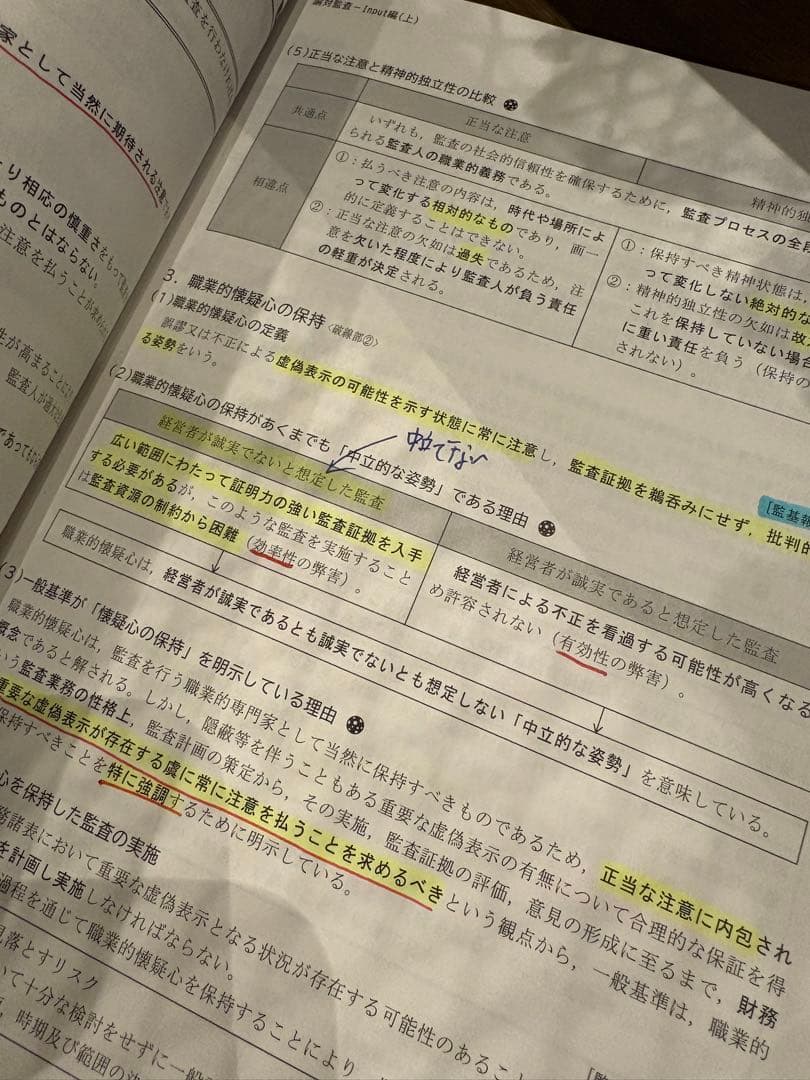 論対監査－Input編(上)
監査を行わなけれ
家として当然に期待される注意
より相応の慎重さをもって
ものとはならない。
注意を払うことが求め
性が高まることに
監査人が過大
であっても
(5)正当な注意と精神的独立性の比較
正当な注意
精神的独
共通点
いずれも，監査の社会的信頼性を確保するために，監査プロセスの全段
られる監査人の職業的義務である。
相違点
①：払うべき注意の内容は，時代や場所によ
って変化する相対的なものであり，画一
的に定義することはできない。
②：正当な注意の欠如は過失であるため，注
意を欠いた程度により監査人が負う責任
の軽重が決定される。
①：保持すべき精神状態は，
って変化しない絶対的な
②：精神的独立性の欠如は故
これを保持していない場合
に重い責任を負う（保持の
されない）。
3．職業的懐疑心の保持〈破線部②〉
(1)職業的懐疑心の定義
誤謬又は不正による虚偽表示の可能性を示す状態に常に注意し，監査証拠を鵜呑みにせず，批判的
る姿勢をいう。
[監基報
(2)職業的懐疑心の保持があくまでも「中立的な姿勢」である理由
中立でない
経営者が誠実でないと想定した監査
広い範囲にわたって証明力の強い監査証拠を入手
する必要があるが，このような監査を実施すること
は監査資源の制約から困難（効率性の弊害）。
経営者が誠実であると想定した監査
経営者による不正を看過する可能性が高くなる
め許容されない（有効性の弊害）。
職業的懐疑心は，経営者が誠実であるとも誠実でないとも想定しない「中立的な姿勢」を意味している。
(3)一般基準が「懐疑心の保持」を明示している理由
職業的懐疑心は，監査を行う職業的専門家として当然に保持すべきものであるため，正当な注意に内包され
概念であると解される。しかし，隠蔽等を伴うこともある重要な虚偽表示の有無について合理的な保証を得
いう監査業務の性格上，監査計画の策定から，その実施，監査証拠の評価，意見の形成に至るまで，財務
重要な虚偽表示が存在する虞に常に注意を払うことを求めるべきという観点から，一般基準は，職業的
保持すべきことを特に強調するために明示している。
心を保持した監査の実施
務諸表において重要な虚偽表示となる状況が存在する可能性のあること
を計画し実施しなければならない。
過程を通じて職業的懐疑心を保持することにより
[監
見落とすリスク
いて十分な検討をせずに一般
，時期及び範囲の決